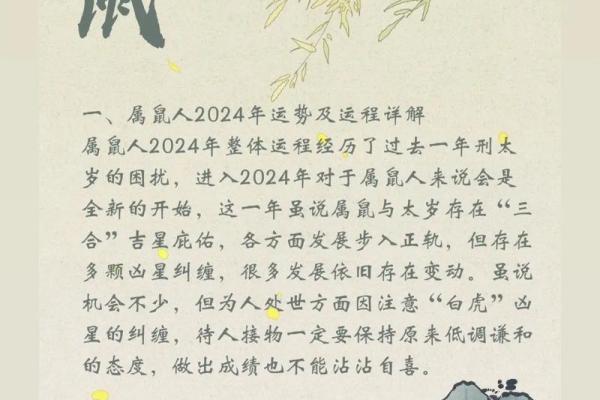 鼠
一、属鼠人2024年运势及运程详解
属鼠人2024年整体运程经历了过去一年刑太
岁的困扰，进入2024年对于属鼠人来说会是
全新的开始，这一年虽说属鼠与太岁存在“三
合”吉星庇佑，各方面发展步入正轨，但存在
多颗凶星纠缠，很多发展依旧存在变动。虽说
机会不少，但为人处世方面因注意“白虎”凶
星的纠缠，待人接物一定要保持原来低调谦和
的态度，做出成绩也不能沾沾自喜。